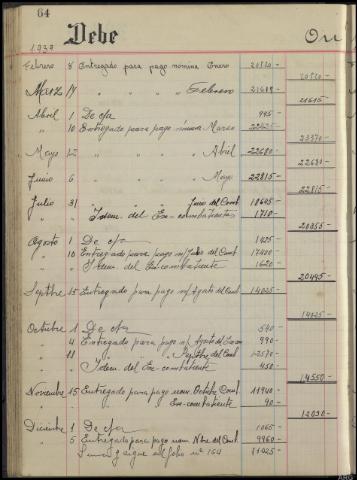 64
Debe
1939
Febrero 8 Entregado para pago nómina Enero 20820-
20820-
Marzo 14 " " " " Febrero 21615-
21615-
Abril 1 De c/a 945-
" 10 Entregado para pago nómina Marzo 22425-
23370-
Mayo 12 " " " " Abril 22680-
22680-
Junio 6 " " " " Mayo 22815-
22815-
Julio 31 " " " " Junio del Comt 18645-
" " Idem. del Ex-combatientes 1710-
20355-
Agosto 1 De c/a 1425-
" 10 Entregado para pago n/ Julio del Comt 17400-
" " Idem del Ex-combatiente 1620-
20445-
Septbre 15 Entregado para pago n/ Agsto del Comt 14025-
14025-
Octubre 1 De c/a 540-
" 4 Entregado para pago n/ Agsto del 990-
" 11 " " " " Septbre del Comt 12570-
" " Idem del Ex-combatiente 450-
14550-
Noviembre 15 Entregado para pago nom. Octubre Comt 11940-
" " " " Ex-combatiente 90-
12030-
Diciembre 1 De c/a 1065-
" 5 Entregado para pago nom Nbre del Comt 9960-
Suma y sigue al folio nº 154 11025-
Ou